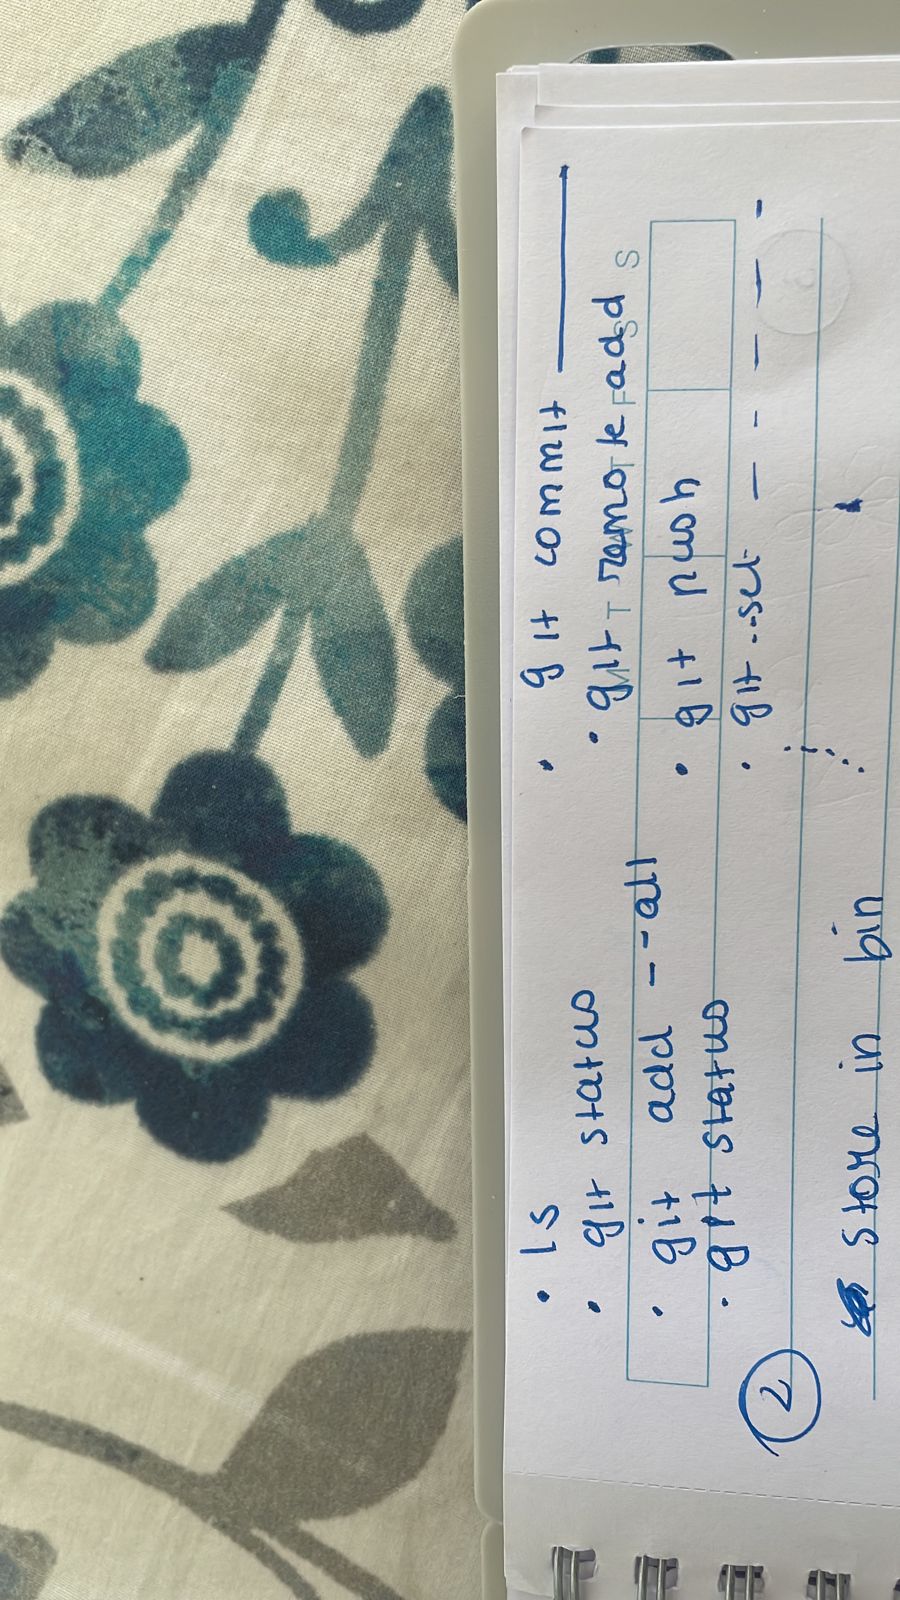 • ls
• git status
• git add --all
• git status
• git commit ______
• git remote add
• git push
• git --set - - - - -
M T W T F S S
② store in bin